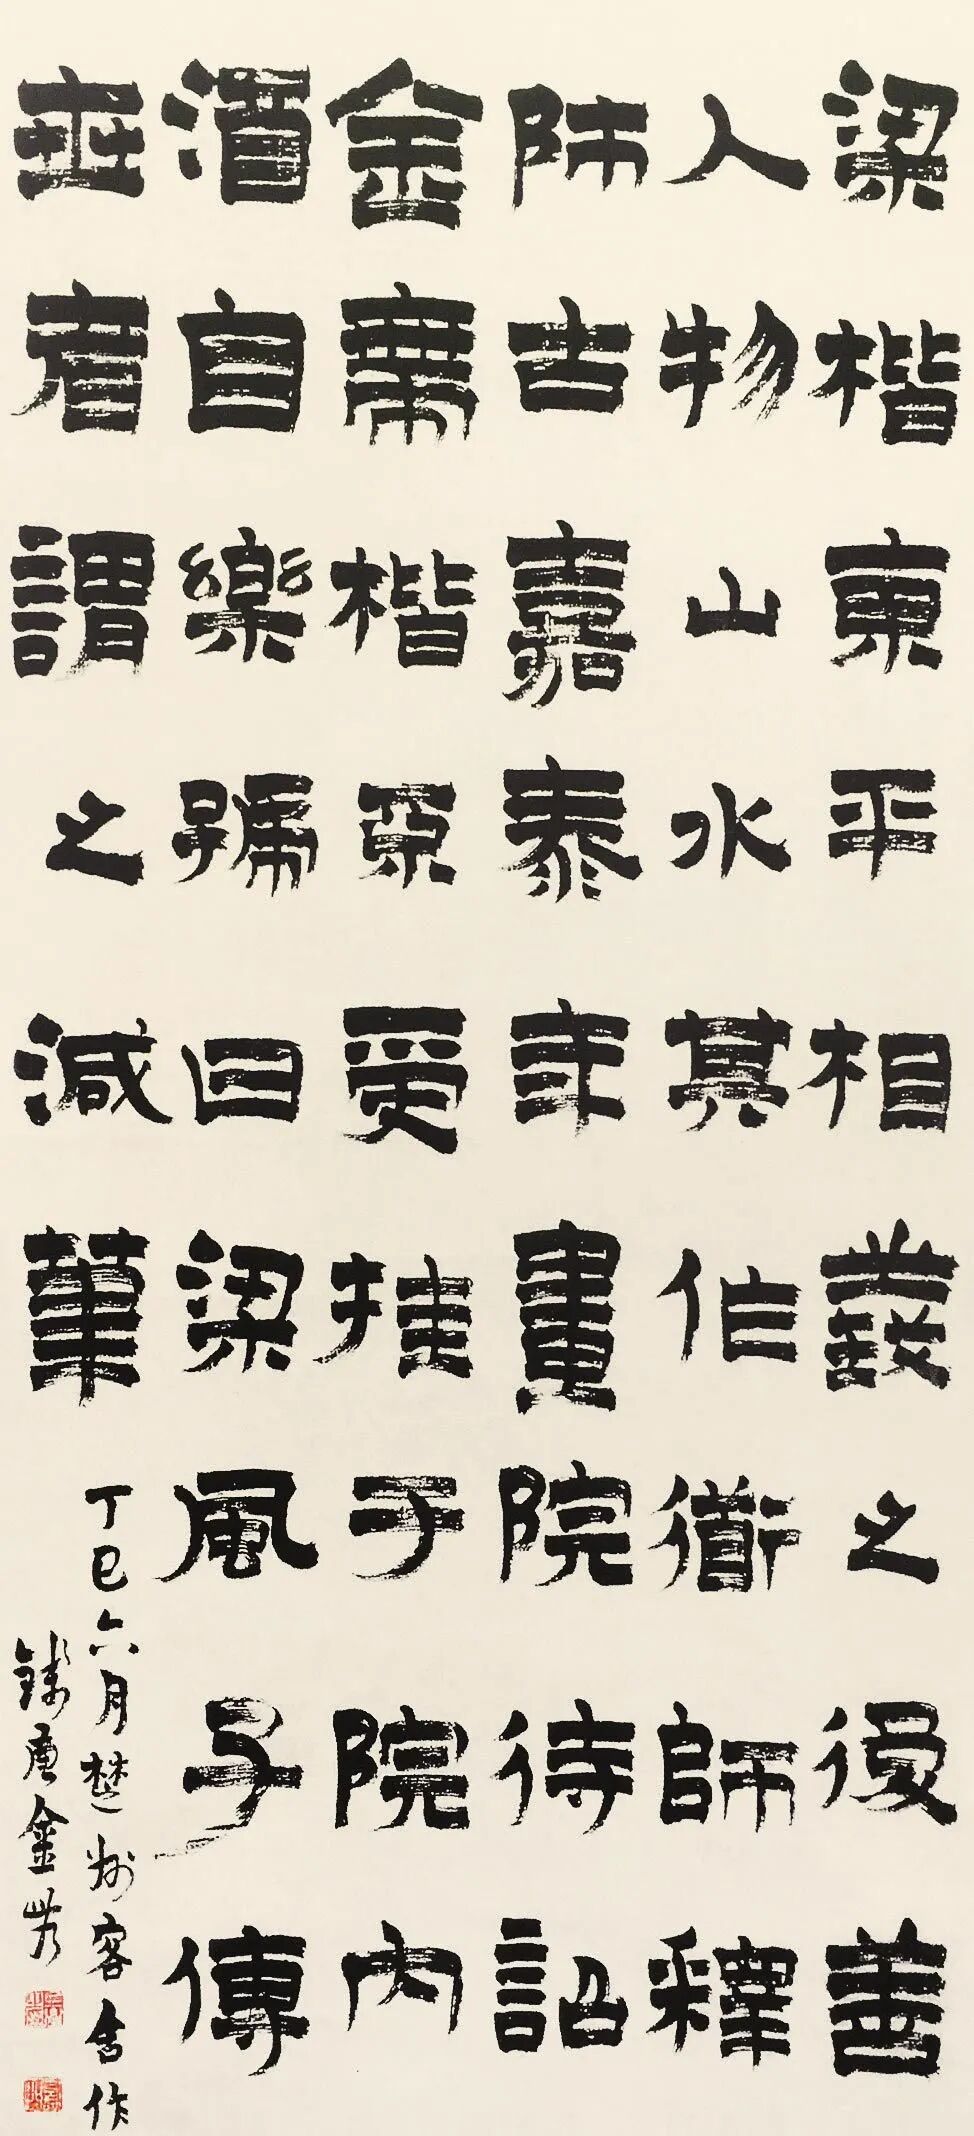 梁楷東平相義之後善
人物山水其作衜師釋
師古嘉泰年畫院待詔
金帶楷不受挂于院内
酒自樂號曰梁風子傳
世者謂之減筆
丁巳六月楚州客舍作
錢唐金農